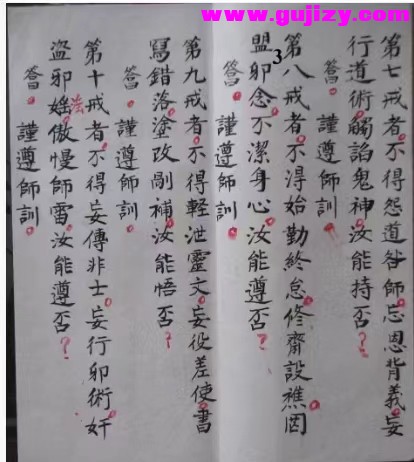 www.gujizy.com
3
第七戒者。不得怨道咎師。忘恩背義。妄
行道術。觸謟鬼神。汝能持否?
答。謹遵師訓。
第八戒者。不淂始勤終怠。修齋設樵。因
盟卯念。不潔身心。汝能遵否?
答。謹遵師訓。
第九戒者。不得輕泄靈文。妄役差使。書
寫錯落。塗改剮補。汝能悟否?
答。謹遵師訓。
第十戒者。不得妄傳非士。妄行卯術。奸
盜卯婬。法傲慢師雷。汝能遵否?
答。謹遵師訓。